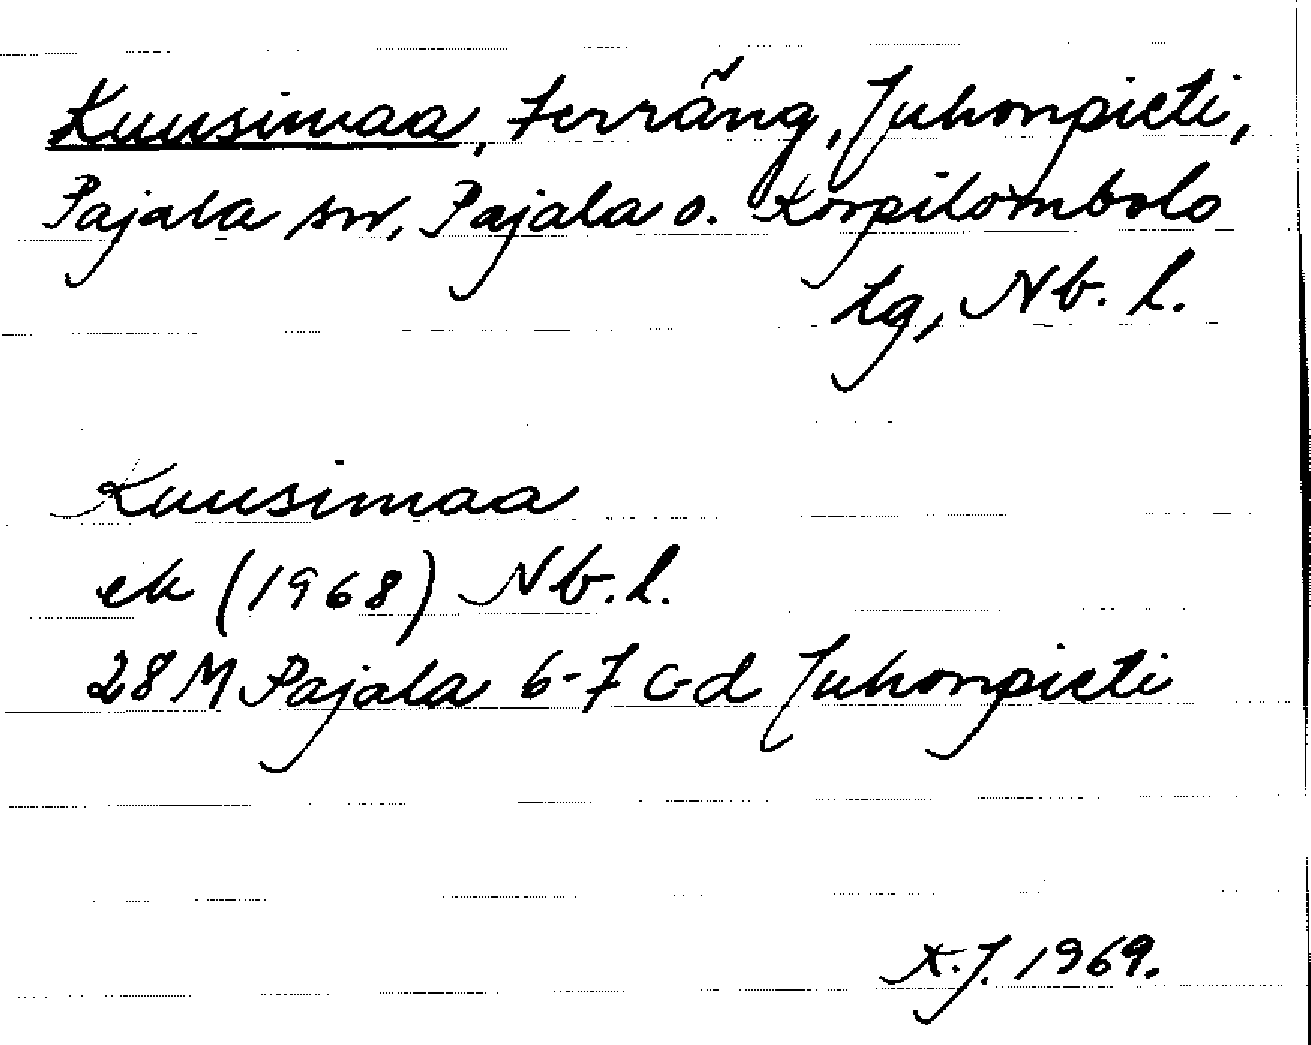 Kuusimaa, terräng, Juhonpieti,
Pajala sn, Pajala o. Korpilombolo
tg, Nb. l.
Kuusimaa
ek (1968) Nb. l.
28 M Pajala 6-7 c-d Juhonpieti
X.J. 1969.